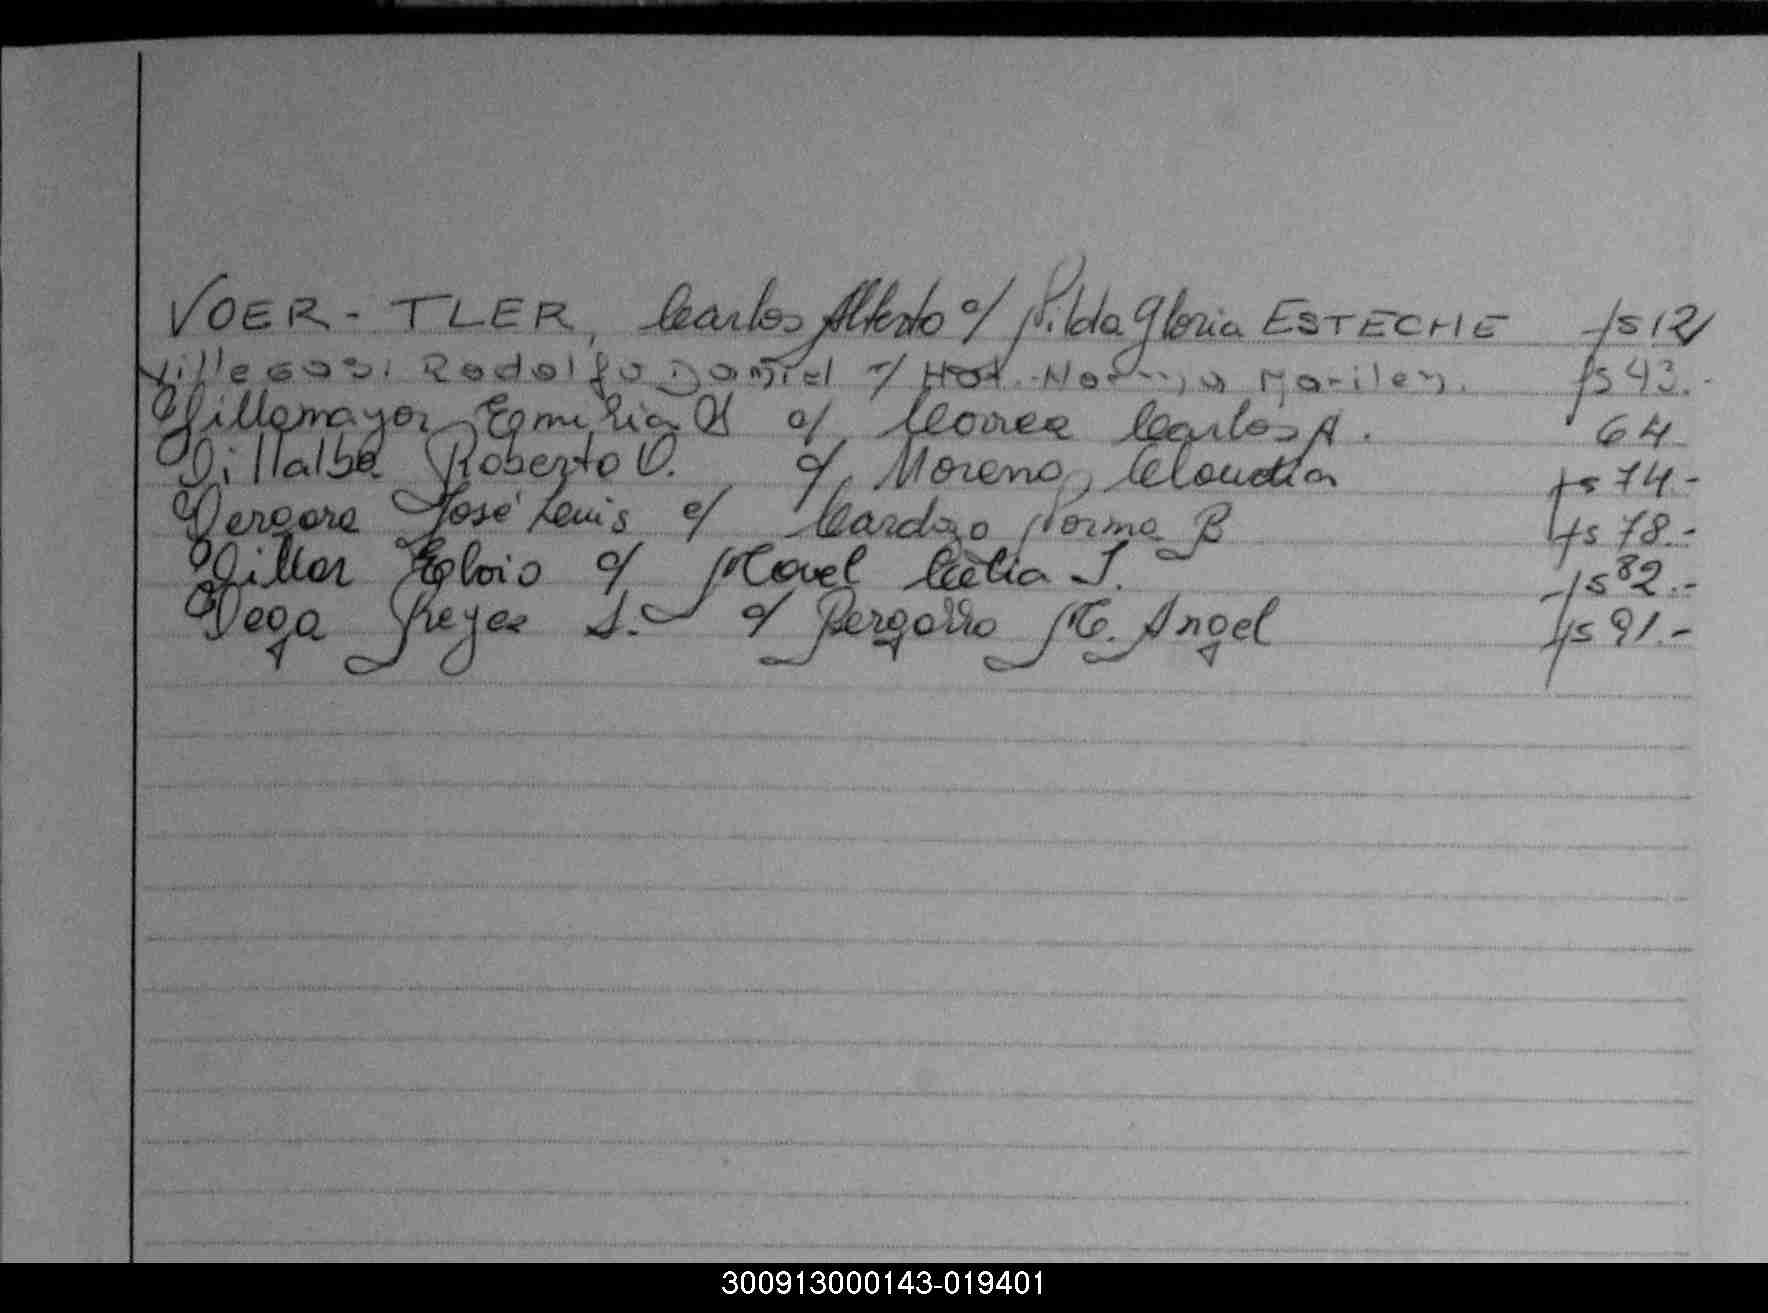 VOER-TLER, Carlos Alberto c/ Nilda Gloria ESTECHE fs 12
Villegas, Rodolfo Daniel c/ Marilen. fs 43.-
Villamayor Emilia c/ Correa Carlos A. 64
Villalba Roberto O. c/ Moreno, Claudia fs 74.-
Vergara José Luis c/ Cardozo Norma B fs 78.-
Villar c/ Celia J. fs 82.-
Vega Reyes S. c/ M. Angel fs 91.-
300913000143-019401